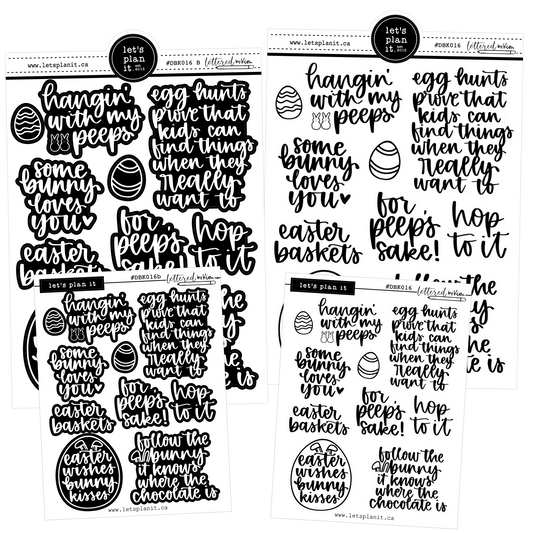 www.letsplanit.ca
let's
plan
it.
EST. 2015
#DBK016 B
lettered by kim
hangin'
with my
peeps
egg hunts
prove that
kids can
find things
when they
really
want to
some
bunny
loves
you
for
peep's
sake!
hop
to it
easter
baskets
www.letsplanit.ca
let's
plan
it.
EST. 2015
#DBK016
lettered by kim
hangin'
with my
peeps
egg hunts
prove that
kids can
find things
when they
really
want to
some
bunny
loves
you
for
peep's
sake!
hop
to it
easter
baskets
follow the
let's plan it
#DBK016b
lettered by kim
hangin'
with my
peeps
egg hunts
prove that
kids can
find things
when they
really
want to
some
bunny
loves
you
for
peep's
sake!
hop
to it
easter
baskets
easter
wishes
bunny
kisses
follow the
bunny
it knows
where the
chocolate is
www.letsplanit.ca
let's plan it
#DBK016
lettered by kim
hangin'
with my
peeps
egg hunts
prove that
kids can
find things
when they
really
want to
some
bunny
loves
you
for
peep's
sake!
hop
to it
easter
baskets
easter
wishes
bunny
kisses
follow the
bunny
it knows
where the
chocolate is
www.letsplanit.ca